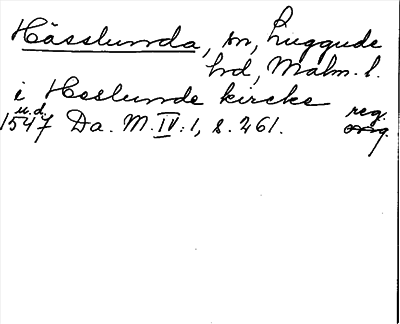 Hässlunda, sn, Luggude
hd, Malm. l.
i Heslunde kircke
u.d. reg.
1547 Da. M. IV: 1, s. 261. orig.